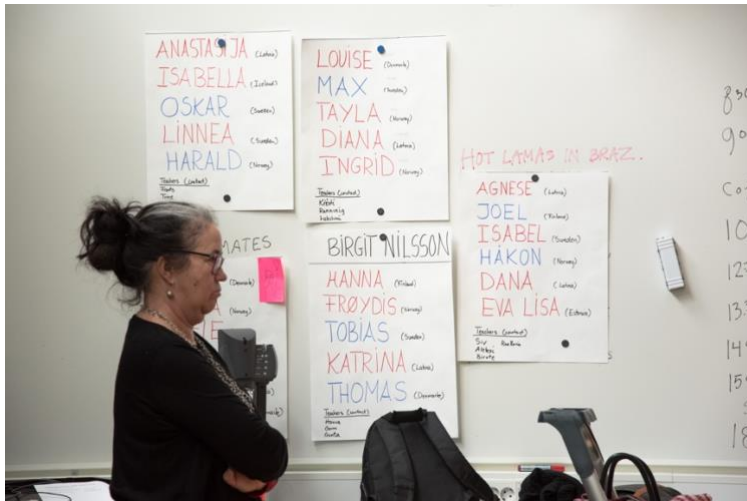 ANASTASIJA (Latvia)
ISABELLA (Iceland)
OSKAR (Sweden)
LINNEA (Sweden)
HARALD (Norway)
Teachers (contact)
LOUISE (Denmark)
MAX (Sweden)
TAYLA (Norway)
DIANA (Latvia)
INGRID (Norway)
Teachers (contact)
HOT LAMAS IN BRAZ.
AGNESE (Latvia)
JOEL (Finland)
ISABEL (Sweden)
HÅKON (Norway)
DANA (Latvia)
EVA LISA (Estonia)
Teachers (contact)
Siv
MATES
(Denmark)
(Norway)
BIRGIT NILSSON
HANNA (Finland)
FRØYDIS (Norway)
TOBIAS (Sweden)
KATRINA (Latvia)
THOMAS (Denmark)
Teachers (contact)